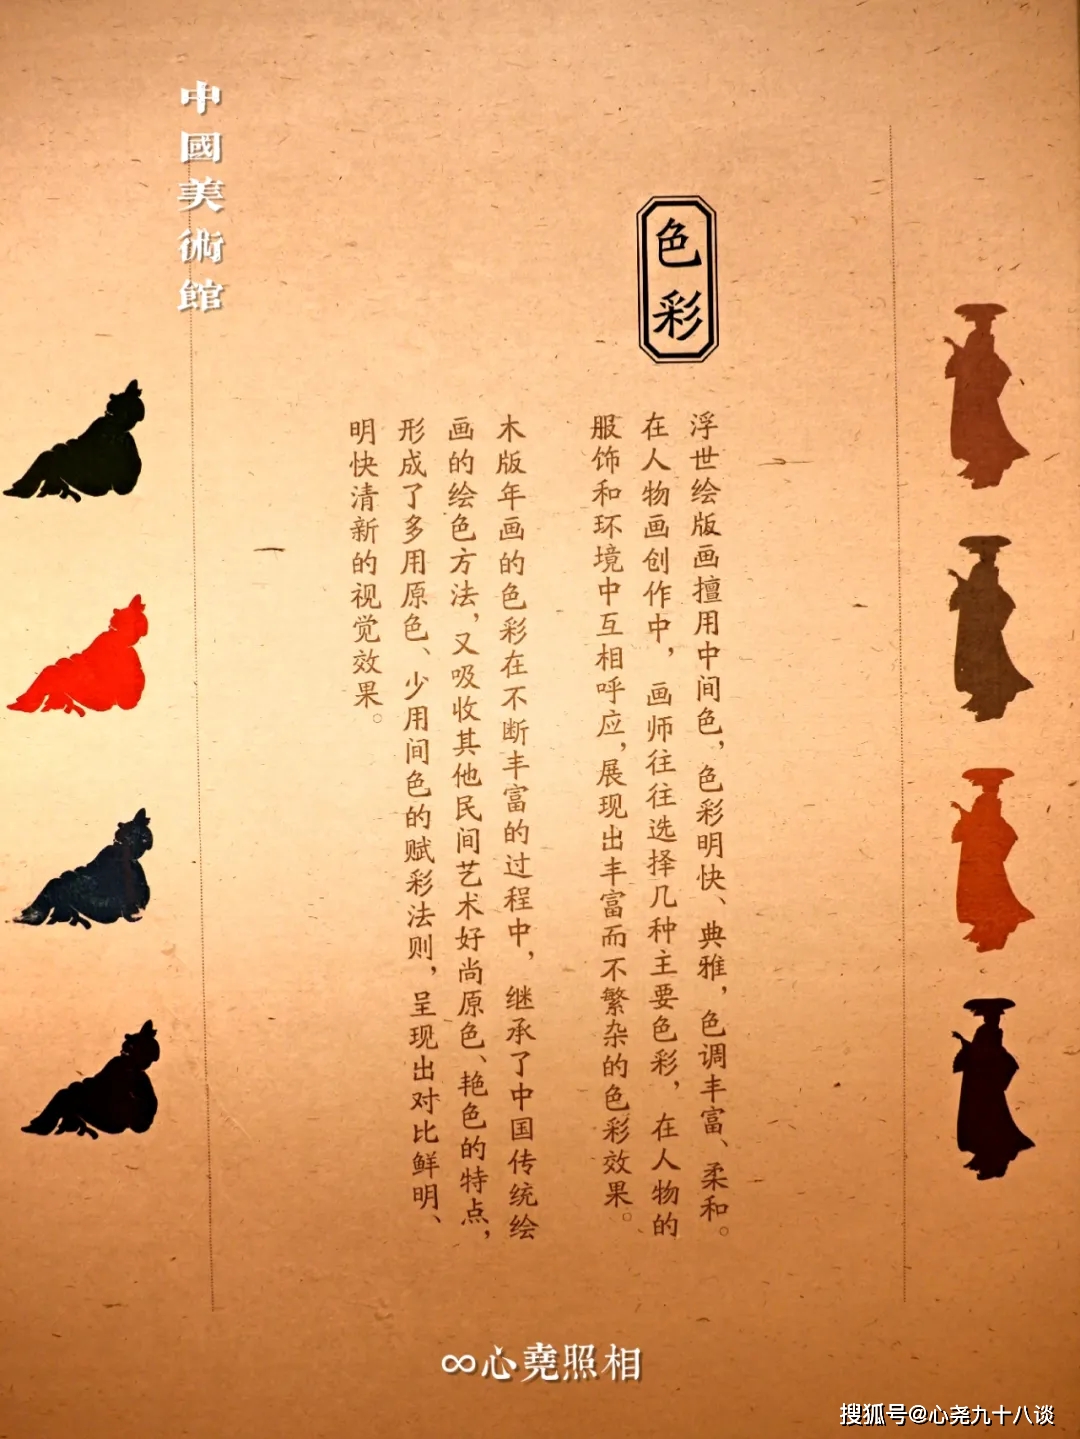 中國美術館
色彩
浮世绘版画擅用中间色，色彩明快、典雅，色调丰富、柔和。
在人物画创作中，画师往往选择几种主要色彩，在人物的
服饰和环境中互相呼应，展现出丰富而不繁杂的色彩效果。
木版年画的色彩在不断丰富的过程中，继承了中国传统绘
画的绘色方法，又吸收其他民间艺术好尚原色、艳色的特点，
形成了多用原色、少用间色的赋彩法则，呈现出对比鲜明、
明快清新的视觉效果。
∞心堯照相
搜狐号@心尧九十八谈